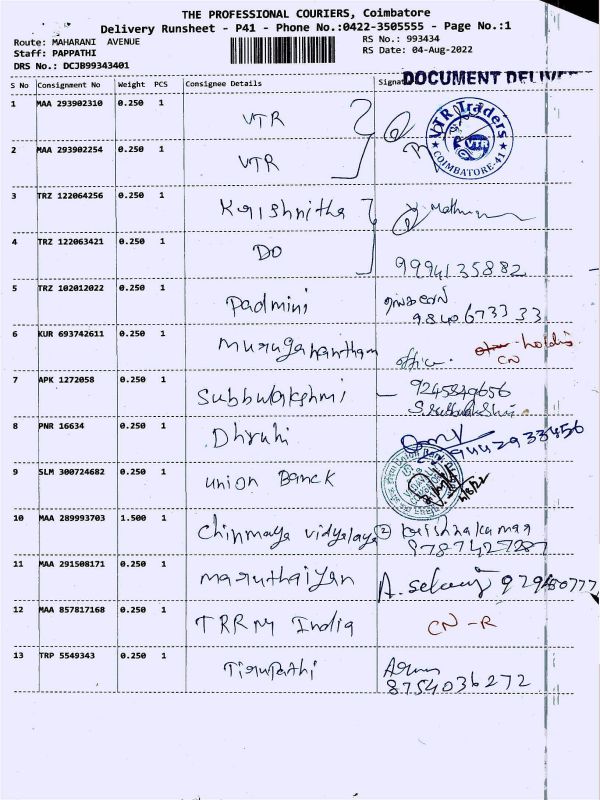 THE PROFESSIONAL COURIERS, Coimbatore
Delivery Runsheet - P41 - Phone No.:0422-3505555 - Page No.:1
Route: MAHARANI AVENUE
RS No.: 993434
Staff: PAPPATHI
RS Date: 04-Aug-2022
DRS No.: DCJB99343401
S No Consignment No Weight PCS Consignee Details
DOCUMENT
1 MAA 293902310 0.250 1 VTR
VTR Traders
VTR
COIMBATORE-41
2 MAA 293902254 0.250 1 VTR
3 TRZ 122064256 0.250 1 Krishnitha
4 TRZ 122063421 0.250 1 DO 9994135882
5 TRZ 102012022 0.250 1 Padmini
9840673333
6 KUR 693742611 0.250 1 Muruganantham office.
CN
7 APK 1272058 0.250 1 Subbulakshmi - 9245849656
8 PNR 16634 0.250 1 9442933456
9 SLM 300724682 0.250 1 union Banck
10 MAA 289993703 1.500 1 Chinmaya vidyalaya ② krishnakumar
9787427287
11 MAA 291508171 0.250 1 maruthaiyan
12 MAA 857817168 0.250 1 TRRM India CN-R
13 TRP 5549343 0.250 1 Tirupathi Arun
8754036272